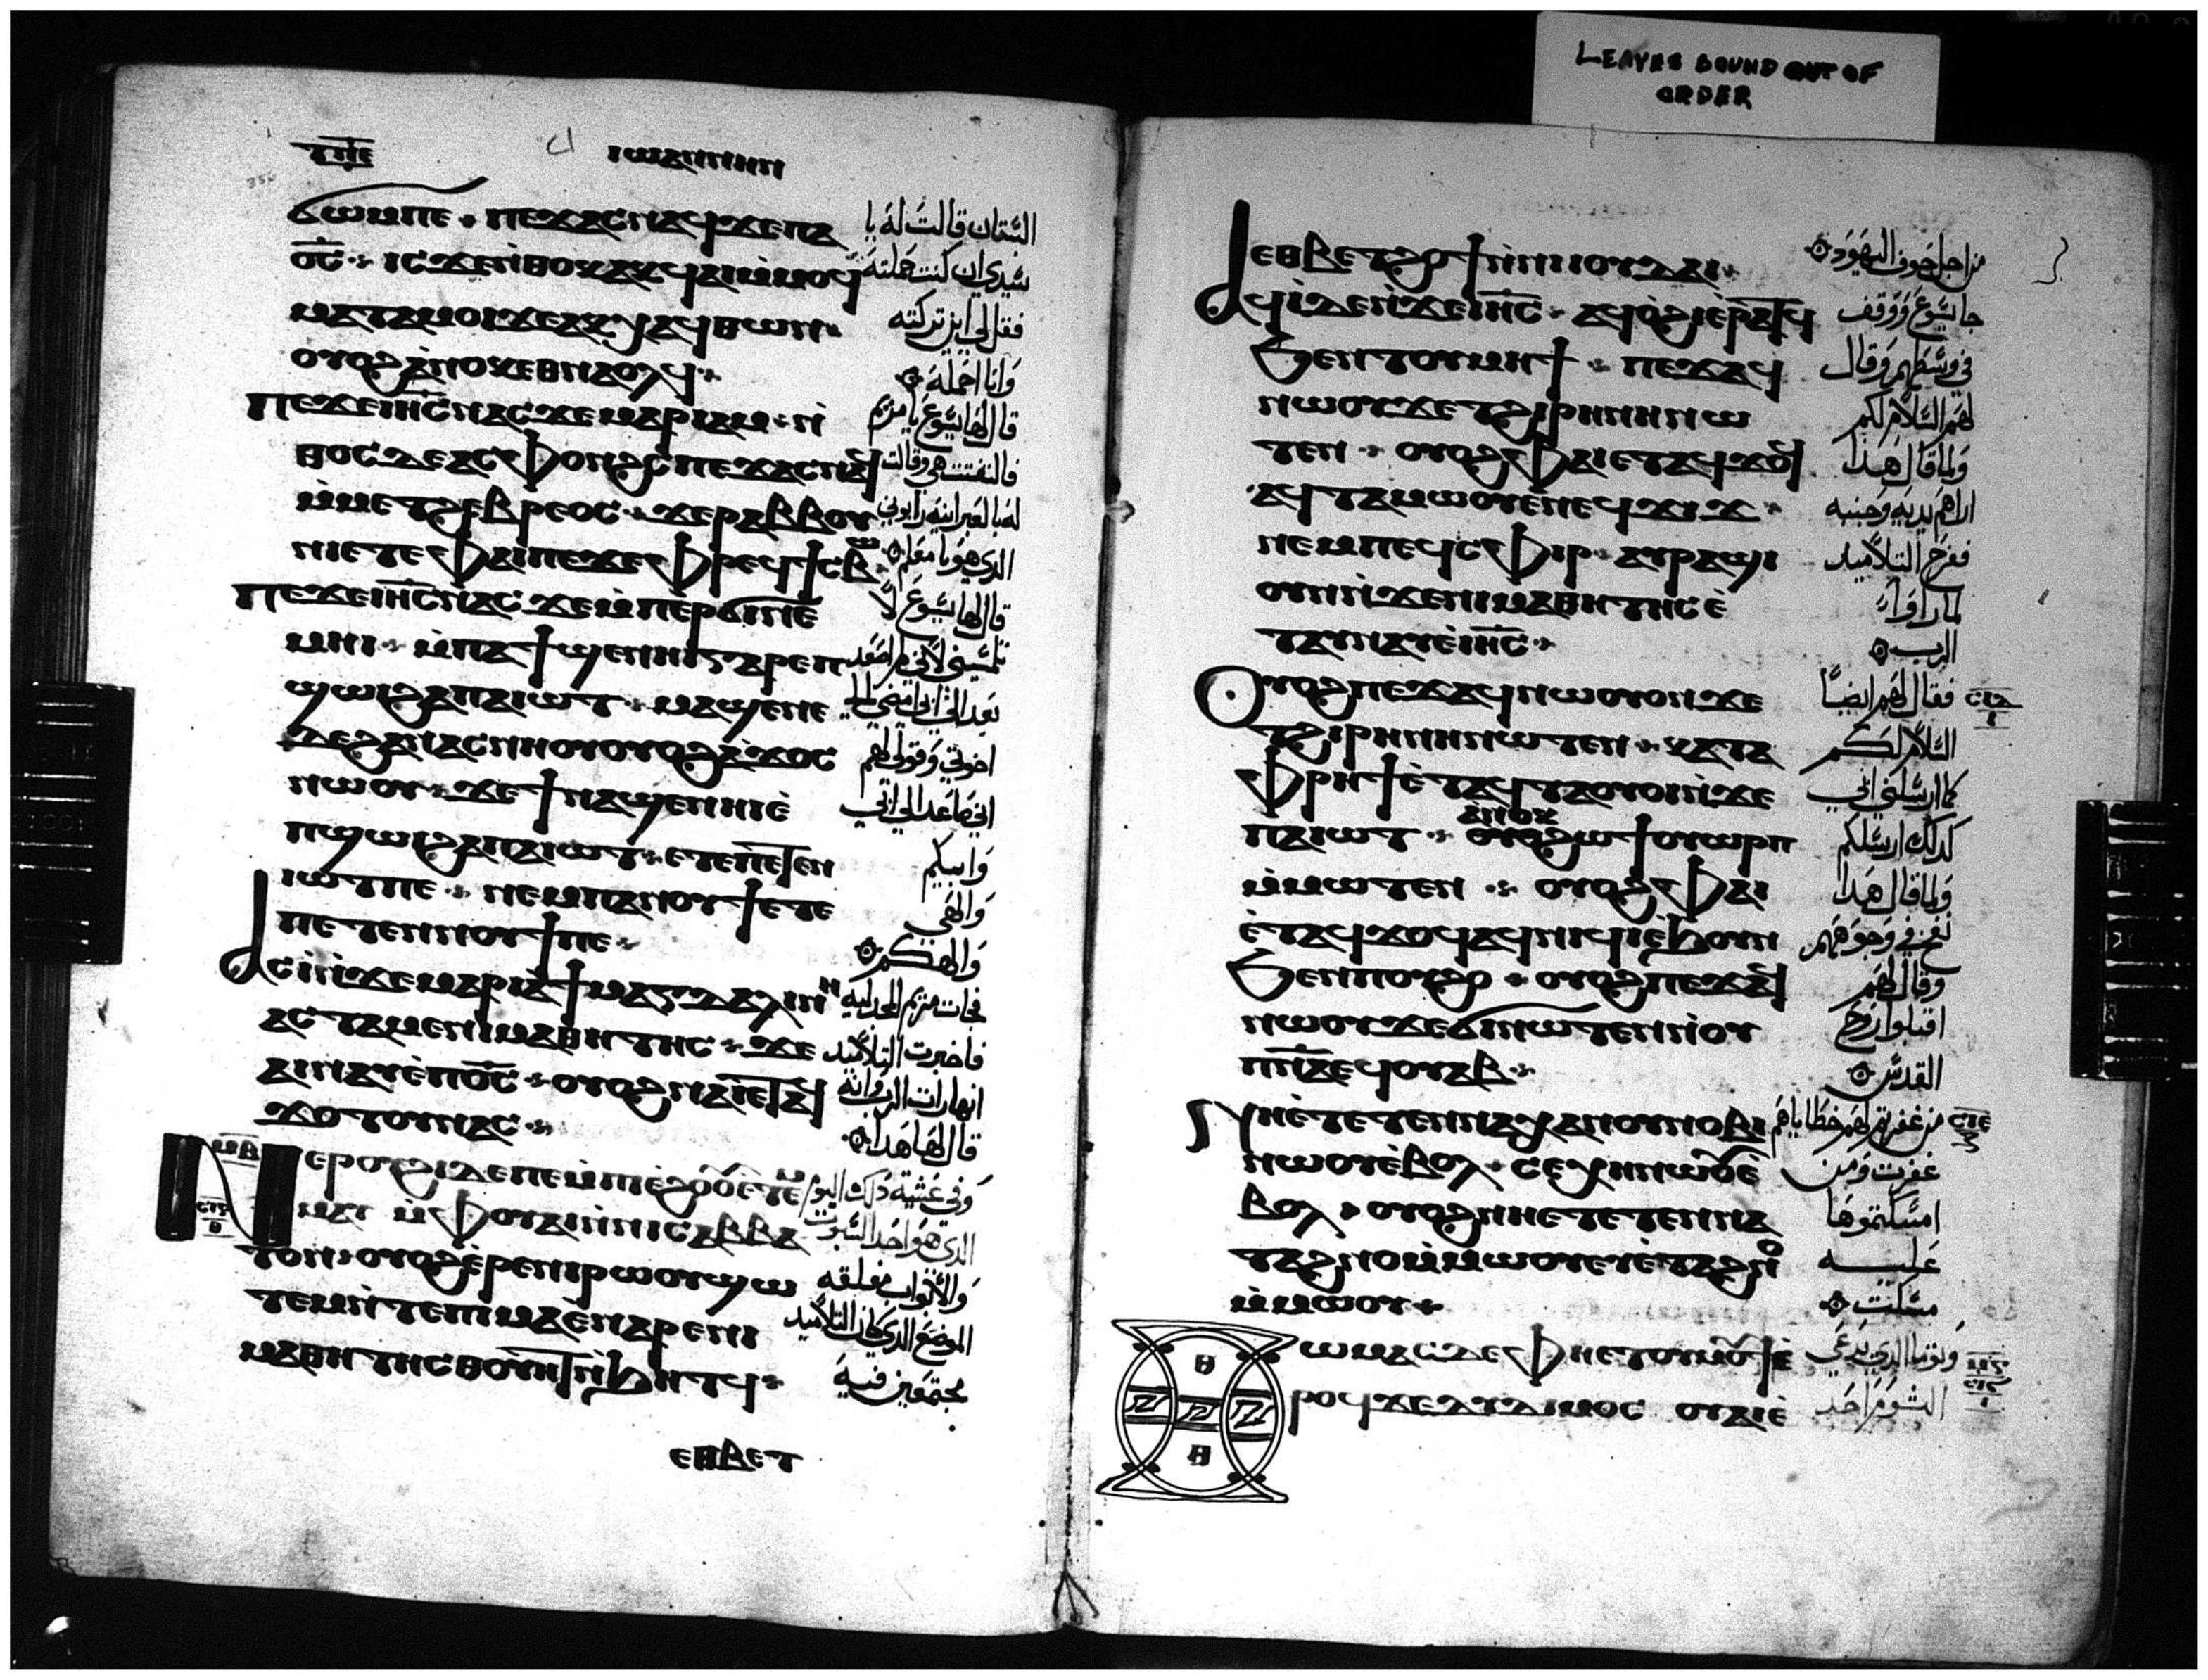 LEAVES BOUND OUT OF
ORDER
ⲧⲡⲉ
ⲓⲱⲁⲛⲛⲏⲛ
ϭⲱⲙⲡⲉ ⲡⲉϫⲁⲥⲛⲁϥϫⲉⲡⲁ
ⲟ̅ⲥ̅ ⲓⲥϫⲉⲛ̀ⲑⲟⲕⲁⲕϥⲁⲓⲙ̀ⲙⲟϥ
ⲙⲁⲧⲁⲙⲟⲓϫⲉⲁⲕⲭⲁϥⲑⲱⲛ
ⲟⲩⲟϩⲁ̀ⲛⲟⲕⲉⲑⲛⲁⲟⲗϥ
ⲡⲉϫⲉⲓⲏ̅ⲥ̅ⲛⲁⲥϫⲉⲙⲁⲣⲓⲁⲙ ⲛ̀
ⲑⲟⲥⲇⲉⲁⲥⲫⲟⲛϩⲥⲡⲉϫⲁⲥⲛⲁϥ
ⲙ̀ⲙⲉⲧϩⲉⲃⲣⲉⲟⲥ ϫⲉⲣⲁⲃⲃⲟⲩ
ⲛⲓⲉⲧⲉⲫⲁⲓⲡⲉϫⲉⲫⲣⲉϥϯⲥⲃⲱ
ⲡⲉϫⲉⲓⲏ̅ⲥ̅ⲛⲁⲥϫⲉⲙ̀ⲡⲉⲣϭⲓⲛⲉ
ⲙⲏⲓ ⲙ̀ⲡⲁϯϣⲉⲛⲏⲓⲅⲁⲣⲉⲡ
ϣⲱⲓϩⲁⲡⲁⲓⲱⲧ ⲙⲁϣⲉⲛⲉ
ⲇⲉϩⲁⲛⲁⲥⲛⲏⲟⲩⲟⲩⲟϩⲁ̀ϫⲟⲥ
ⲛⲱⲟⲩ ϫⲉϯⲛⲁϣⲉⲛⲏⲓⲉ̀
ⲡϣⲱⲓϩⲁⲡⲁⲓⲱⲧ ⲉⲧⲉⲡⲉⲧⲉⲛ
ⲓⲱⲧⲡⲉ ⲛⲉⲙⲡⲁⲛⲟⲩϯⲉⲧⲉ
ⲡⲉⲧⲉⲛⲛⲟⲩϯⲡⲉ
ⲁⲥⲓ̀ⲛ̀ϫⲉⲙⲁⲣⲓⲁϯⲙⲁⲅⲇⲁⲗⲓⲛⲏ
ⲁⲥⲧⲁⲙⲉⲛⲓⲙⲁⲑⲏⲧⲏⲥ ϫⲉ
ⲁⲓⲛⲁⲩⲉ̀ⲡⲟ̅ⲥ̅ ⲟⲩⲟϩⲛⲁⲓⲉⲧⲁϥ
ϫⲟⲧⲟⲩⲛⲁⲥ
ⲙⲃ
ⲛⲉⲣⲟⲩϩⲓⲇⲉⲡⲉⲙ̀ⲡⲓⲉ̀ϩⲟⲟⲩⲉⲧⲉ̀ⲙ
ⲙⲁⲩ ⲙ̀ⲫⲟⲩⲁⲓⲛ̀ⲛⲓⲥⲁⲃⲃⲁ
ⲧⲟⲛ ⲟⲩⲟϩⲉ̀ⲣⲉⲛⲓⲣⲱⲟⲩϣⲱ
ⲧⲉⲙⲛ̀ⲧⲉⲡⲓⲙⲁⲉ̀ⲛⲁⲣⲉⲛⲓ
ⲙⲁⲑⲏⲧⲏⲥⲑⲟⲩⲏⲧⲛ̀ϧⲏⲧϥ
ⲉⲑⲃⲉⲧ
السَتان قالت له يا
سَيدي ان كنت حملته
فقل لي اين تركته
وَانا احمله
قال لها يسَوع يا مريم
فالتفتت هي وقالت
له بالعبرانية رابوني
الذي هو يا معلم
قال لها يسَوع لا
تلمسَيني لاني لم اصعد
بعد الي ابي امضي الي
اخوتي وقولي لهم
اني صاعد الي ابي
وَابيكم
وَالهي
وَالهكم
فجات مريم المجدلية
فاخبرت التلاميد
انها رات الرب وانه
قال لها هدا
وَفي عَشية دلك اليوم
الذي هو احد السَبوت
وَالابواب مغلقه
الموضع الدي كان التلاميد
مجتمعَين فيه
ⲉⲑⲃⲉⲧϩⲟϯⲛ̀ⲛⲓⲓⲟⲩⲇⲁⲓ
ⲁϥⲓ̀ⲇⲉⲛ̀ϫⲉⲓⲏ̅ⲥ̅ ⲁϥⲟ̀ϩⲓⲉ̀ⲣⲁⲧϥ
ϧⲉⲛⲧⲟⲩⲙⲏϯ ⲡⲉϫⲁϥ
ⲛⲱⲟⲩϫⲉⲧϩⲓⲣⲏⲛⲏⲛⲱ
ⲧⲉⲛ ⲟⲩⲟϩⲫⲁⲓⲉⲧⲁϥϫⲟϥ
ⲁϥⲧⲁⲙⲱⲟⲩⲉⲛⲉϥϫⲓϫ
ⲛⲉⲙⲡⲉϥⲥⲫⲓⲣ ⲁⲩⲣⲁϣⲓ
ⲟⲩⲛⲛ̀ϫⲉⲛⲓⲙⲁⲑⲏⲧⲏⲥⲉ̀
ⲧⲁⲩⲛⲁⲩⲉ̀ⲓⲏ̅ⲥ̅
ⲟⲩⲟϩⲡⲉϫⲁϥⲛⲱⲟⲩⲟⲛϫⲉ
ⲧϩⲓⲣⲏⲛⲏⲛⲱⲧⲉⲛ ⲕⲁⲧⲁ
ⲫⲣⲏϯⲉ̀ⲧⲁϥⲧⲁⲟⲩⲟⲓⲛ̀ϫⲉ
ⲁⲛⲟⲕ
ⲡⲁⲓⲱⲧ ⲟⲩⲟϩⲱϯⲟⲩⲱⲣⲡ
ⲙ̀ⲙⲱⲧⲉⲛ ⲟⲩⲟϩⲫⲁⲓ
ⲉ̀ⲧⲁϥϫⲟϥⲁϥⲛⲓϥⲓⲉ̀ϧⲟⲩⲛ
ϧⲉⲛⲡⲟⲩϩⲟ ⲟⲩⲟϩⲡⲉϫⲁϥ
ⲛⲱⲟⲩϫⲉϭⲓⲛⲱⲧⲉⲛⲛ̀ⲟⲩ
ⲡ̅ⲛ̅ⲁ̅ⲉϥⲟⲩⲁⲃ
ⲛⲏⲉ̀ⲧⲉⲧⲉⲛⲛⲁⲭⲁⲛⲟⲩⲛⲟⲃⲓ
ⲛⲱⲟⲩⲉ̀ⲃⲟⲗ ⲥⲉⲭⲏⲛⲱⲟⲩⲉ̀
ⲃⲟⲗ ⲟⲩⲟϩⲛⲏⲉⲧⲉⲧⲉⲛⲛⲁ
ⲧⲁϩⲛⲟⲙ̀ⲙⲱⲟⲩⲉⲩⲉ̀ⲧⲁϩⲛⲟ
ⲙ̀ⲙⲱⲟⲩ
ⲑⲱⲙⲁⲥⲇⲉⲫⲏⲉⲧⲟⲩⲙⲟⲩϯⲉ̀
ⲣⲟϥϫⲉⲇⲓⲇⲩⲙⲟⲥ ⲟⲩⲁⲓⲉ̀
من اجل خوف اليهود
جا يسَوع وَوقف
في وسَطهم وقال
لهم السَلام لكم
وَلما قال هدا
اراهم يديه وَجنبه
ففرح التلاميد
لما راوا
الرب
فقال لهم ايضًا
السَلام لكم
كما ارسَلني ابي
كدلك ارسَلكم
وَلما قال هدا
نفخ في وجوههم
وقال لهم
اقبلوا روح
القدسَ
من غفرتم لهم خطاياهم
غفرت وَمن
امسَكتموها
عليه
مسَكت
وَتوما الدي يدعَي
التوم احد